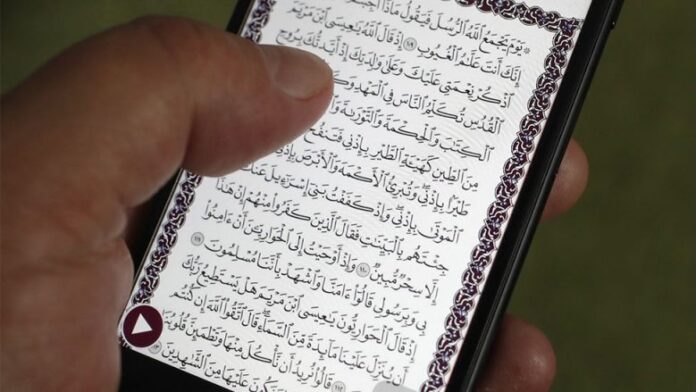 ۞ يَوْمَ يَجْمَعُ ٱللَّهُ ٱلرُّسُلَ فَيَقُولُ مَاذَآ
إِنَّكَ أَنتَ عَلَّـٰمُ ٱلْغُيُوبِ ١٠٩ إِذْ قَالَ ٱللَّهُ يَـٰعِيسَى ٱبْنَ مَرْيَمَ
ٱذْكُرْ نِعْمَتِى عَلَيْكَ وَعَلَىٰ وَٰلِدَتِكَ إِذْ أَيَّدتُّكَ بِرُوحِ
ٱلْقُدُسِ تُكَلِّمُ ٱلنَّاسَ فِى ٱلْمَهْدِ
ٱلْكِتَـٰبَ وَٱلْحِكْمَةَ وَٱلتَّوْرَىٰةَ
مِنَ ٱلطِّينِ كَهَيْـَٔةِ ٱلطَّيْرِ بِإِذْنِى فَتَنفُخُ
طَيْرًۢا بِإِذْنِى وَتُبْرِئُ ٱلْأَكْمَهَ وَٱلْأَبْرَصَ بِإِذْنِى
ٱلْمَوْتَىٰ بِإِذْنِى وَإِذْ كَفَفْتُ بَنِىٓ إِسْرَٰٓءِيلَ عَنكَ
جِئْتَهُم بِٱلْبَيِّنَـٰتِ فَقَالَ ٱلَّذِينَ كَفَرُوا۟ مِنْهُمْ إِنْ هَـٰذَآ
إِلَّا سِحْرٌ مُّبِينٌ ١١٠ وَإِذْ أَوْحَيْتُ إِلَى ٱلْحَوَارِيِّـۧنَ أَنْ ءَامِنُوا۟
بِى وَبِرَسُولِى قَالُوٓا۟ ءَامَنَّا وَٱشْهَدْ بِأَنَّنَا مُسْلِمُونَ ١١١
إِذْ قَالَ ٱلْحَوَارِيُّونَ يَـٰعِيسَى ٱبْنَ مَرْيَمَ هَلْ يَسْتَطِيعُ رَبُّكَ
أَن يُنَزِّلَ عَلَيْنَا مَآئِدَةً مِّنَ ٱلسَّمَآءِ قَالَ ٱتَّقُوا۟ ٱللَّهَ إِن كُنتُم
١١٢ قَالُوا۟ نُرِيدُ أَن نَّأْكُلَ مِنْهَا وَتَطْمَئِنَّ قُلُوبُنَا
وَنَكُونَ عَلَيْهَا مِنَ ٱلشَّـٰهِدِينَ ١١٣